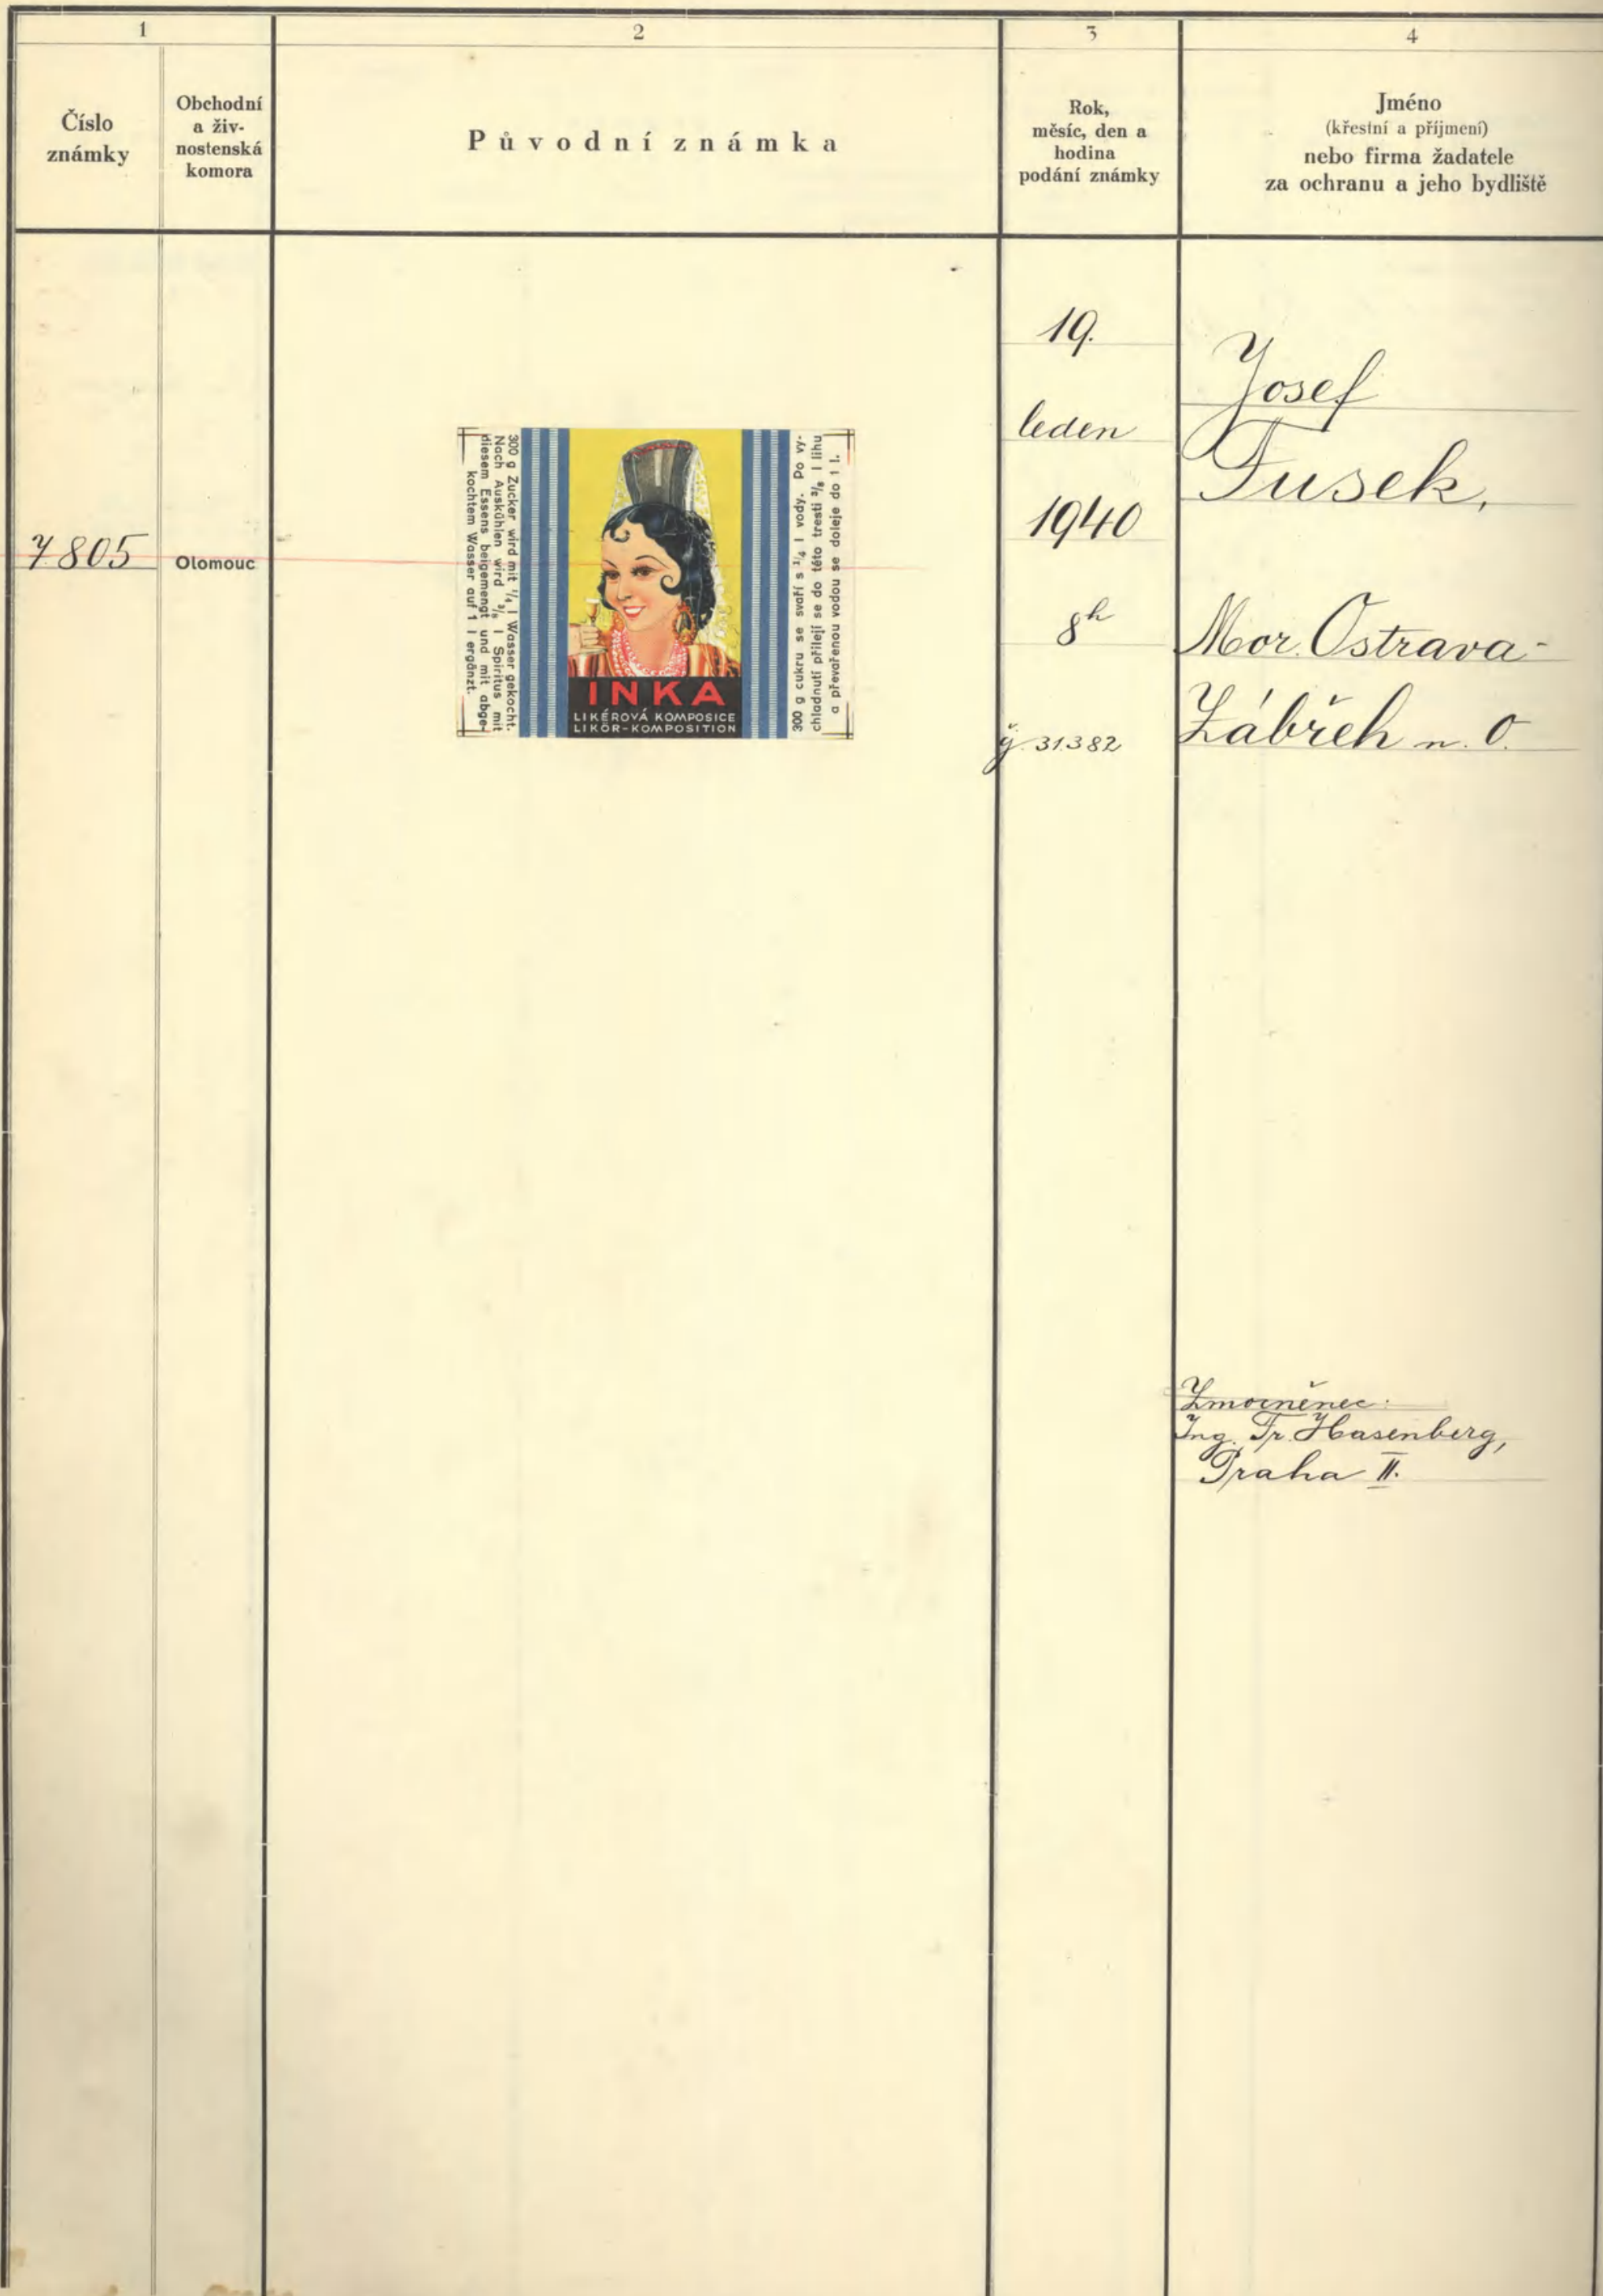 1
2
3
4
Číslo
známky
Obchodní
a živ-
nostenská
komora
Původní známka
Rok,
měsíc, den a
hodina
podání známky
Jméno
(křestní a příjmení)
nebo firma žadatele
za ochranu a jeho bydliště
7805
Olomouc
300 g Zucker wird mit 1/4 l Wasser gekocht.
Nach Auskühlen wird 3/8 l Spiritus mit
diesem Essens beigemengt und mit abge-
kochtem Wasser auf 1 l ergänzt.
INKA
LIKÉROVÁ KOMPOSICE
LIKÖR-KOMPOSITION
300 g cukru se svaří s 1/4 l vody. Po vy-
chladnutí přilejí se do této tresti 3/8 l lihu
a převařenou vodou se doleje do 1 l.
19.
leden
1940
8h
31382
Josef
Fusek,
Mor. Ostrava-
Zábřeh n. O.
Zmocněnec:
Ing. Fr. Hasenberg,
Praha II.